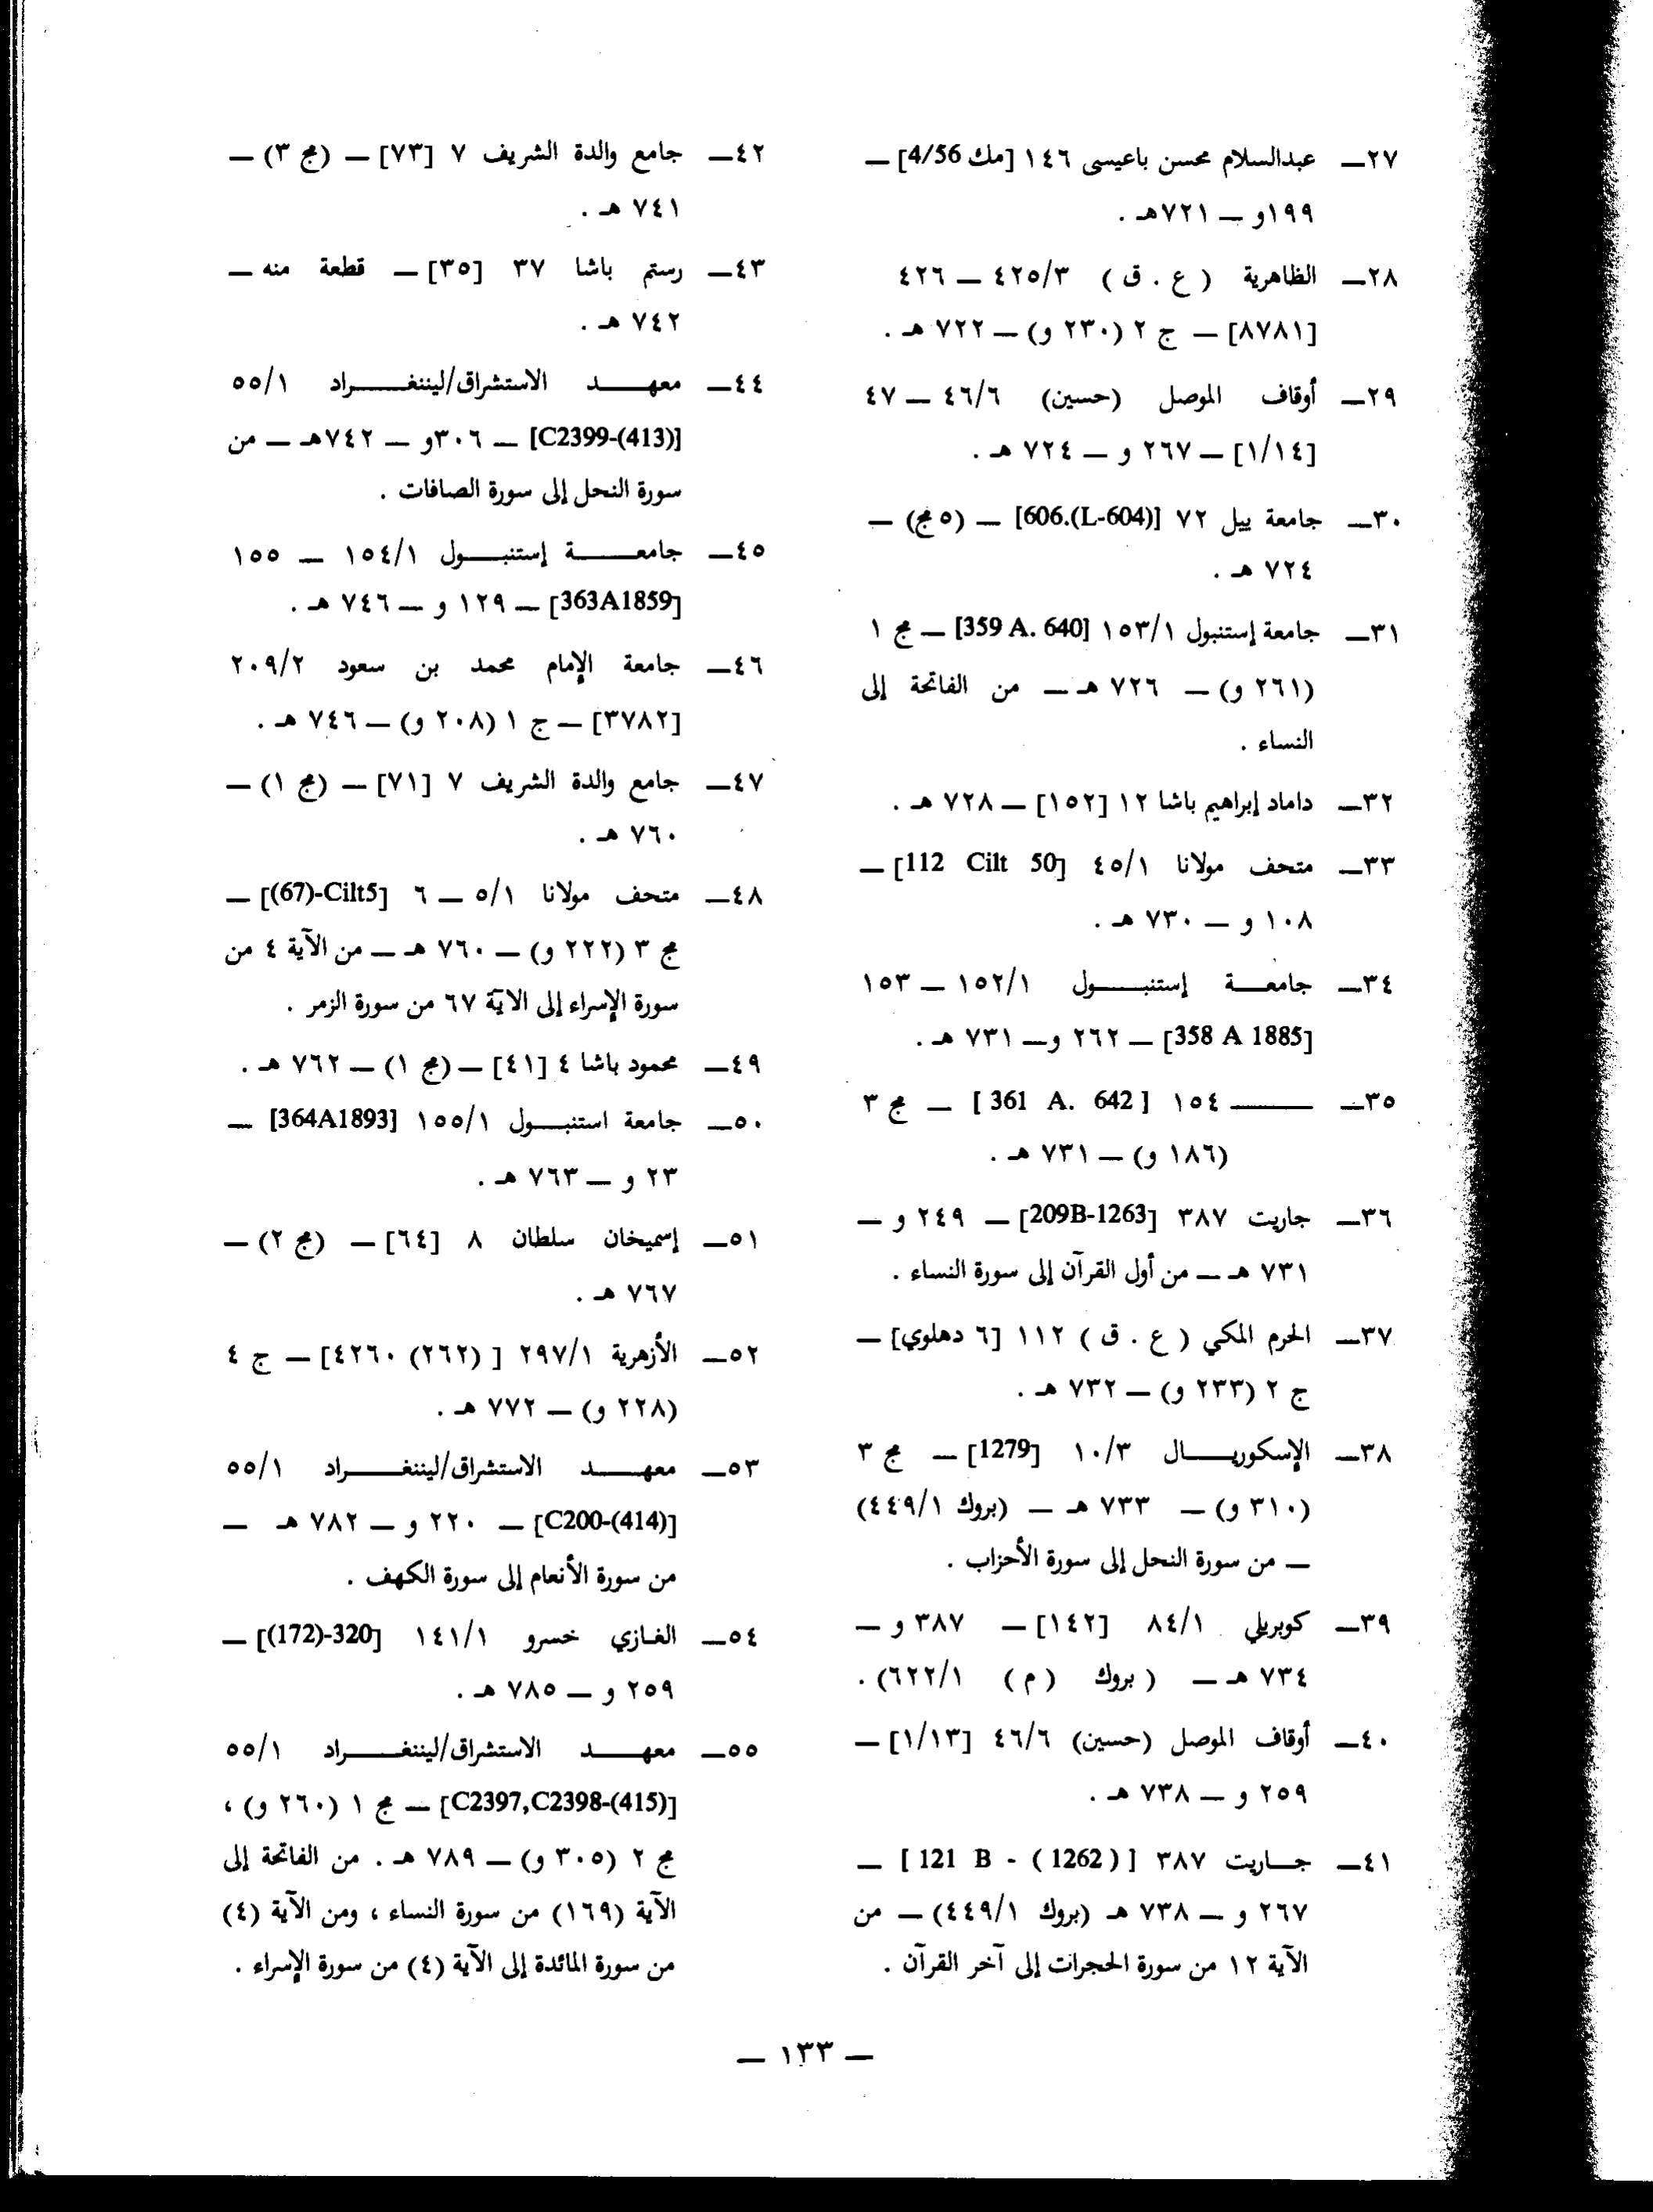 ٢٧ــ عبدالسلام محسن باعيسى ١٤٦ [مك 4/56] ــ
١٩٩و ــ ٧٢١هـ .
٢٨ــ الظاهرية ( ع . ق ) ٤٢٥/٣ ــ ٤٢٦
[٨٧٨١] ــ ج ٢ (٢٣٠ و) ــ ٧٢٢ هـ .
٢٩ــ أوقاف الموصل (حسين) ٤٦/٦ ــ ٤٧
[١/١٤] ــ ٢٦٧ و ــ ٧٢٤ هـ .
٣٠ــ جامعة ييل ٧٢ [606.(L-604)] ــ (٥ مج) ــ
٧٢٤ هـ .
٣١ــ جامعة إستنبول ١٥٣/١ [359 A. 640] ــ مج ١
(٢٦١ و) ــ ٧٢٦ هـ ــ من الفاتحة إلى
النساء .
٣٢ــ داماد إبراهيم باشا ١٢ [١٥٢] ــ ٧٢٨ هـ .
٣٣ــ متحف مولانا ٤٥/١ [112 Cilt 50] ــ
١٠٨ و ــ ٧٣٠ هـ .
٣٤ــ جامعـــة إستنبـــــول ١٥٢/١ ــ ١٥٣
[358 A 1885] ــ ٢٦٢ و ــ ٧٣١ هـ .
٣٥ــ ـــــــــ ١٥٤ [361 A. 642] ــ مج ٣
(١٨٦ و) ــ ٧٣١ هـ .
٣٦ــ جاريت ٣٨٧ [209B-1263] ــ ٢٤٩ و ــ
٧٣١ هـ ــ من أول القرآن إلى سورة النساء .
٣٧ــ الحرم المكي ( ع . ق ) ١١٢ [٦ دهلوي] ــ
ج ٢ (٢٣٣ و) ــ ٧٣٢ هـ .
٣٨ــ الإسكوريـــــال ١٠/٣ [1279] ــ مج ٣
(٣١٠ و) ــ ٧٣٣ هـ ــ (بروك ٤٤٩/١)
ــ من سورة النحل إلى سورة الأحزاب .
٣٩ــ كوبريلي ٨٤/١ [١٤٢] ــ ٣٨٧ و ــ
٧٣٤ هـ ــ ( بروك ( م ) ٦٢٢/١) .
٤٠ــ أوقاف الموصل (حسين) ٤٦/٦ [١/١٣] ــ
٢٥٩ و ــ ٧٣٨ هـ .
٤١ــ جــاريت ٣٨٧ [121 B - (1262)] ــ
٢٦٧ و ــ ٧٣٨ هـ (بروك ٤٤٩/١) ــ من
الآية ١٢ من سورة الحجرات إلى آخر القرآن .
٤٢ــ جامع والدة الشريف ٧ [٧٣] ــ (مج ٣) ــ
٧٤١ هـ .
٤٣ــ رستم باشا ٣٧ [٣٥] ــ قطعة منه ــ
٧٤٢ هـ .
٤٤ــ معهـــــد الاستشراق/ليننغـــــــراد ٥٥/١
[C2399-(413)] ــ ٣٠٦و ــ ٧٤٢هـ ــ من
سورة النحل إلى سورة الصافات .
٤٥ــ جامعـــــــة إستنبـــــول ١٥٤/١ ــ ١٥٥
[363A1859] ــ ١٢٩ و ــ ٧٤٦ هـ .
٤٦ــ جامعة الإمام محمد بن سعود ٢٠٩/٢
[٣٧٨٢] ــ ج ١ (٢٠٨ و) ــ ٧٤٦ هـ .
٤٧ــ جامع والدة الشريف ٧ [٧١] ــ (مج ١) ــ
٧٦٠ هـ .
٤٨ــ متحف مولانا ٥/١ ــ ٦ [(67)-Cilt5] ــ
مج ٣ (٢٢٢ و) ــ ٧٦٠ هـ ــ من الآية ٤ من
سورة الإسراء إلى الاية ٦٧ من سورة الزمر .
٤٩ــ محمود باشا ٤ [٤١] ــ (مج ١) ــ ٧٦٢ هـ .
٥٠ــ جامعة استنبـــــول ١٥٥/١ [364A1893] ــ
٢٣ و ــ ٧٦٣ هـ .
٥١ــ إسميخان سلطان ٨ [٦٤] ــ (مج ٢) ــ
٧٦٧ هـ .
٥٢ــ الأزهرية ٢٩٧/١ [ (٢٦٢) ٤٢٦٠] ــ ج ٤
(٢٢٨ و) ــ ٧٧٢ هـ .
٥٣ــ معهـــــد الاستشراق/ليننغـــــــراد ٥٥/١
[C200-(414)] ــ ٢٢٠ و ــ ٧٨٢ هـ ــ
من سورة الأنعام إلى سورة الكهف .
٥٤ــ الغـازي خسرو ١٤١/١ [(172)-320] ــ
٢٥٩ و ــ ٧٨٥ هـ .
٥٥ــ معهـــــد الاستشراق/ليننغـــــــراد ٥٥/١
[C2397,C2398-(415)] ــ مج ١ (٢٦٠ و) ،
مج ٢ (٣٠٥ و) ــ ٧٨٩ هـ . من الفاتحة إلى
الآية (١٦٩) من سورة النساء ، ومن الآية (٤)
من سورة المائدة إلى الآية (٤) من سورة الإسراء .
ــ ١٣٣ ــ